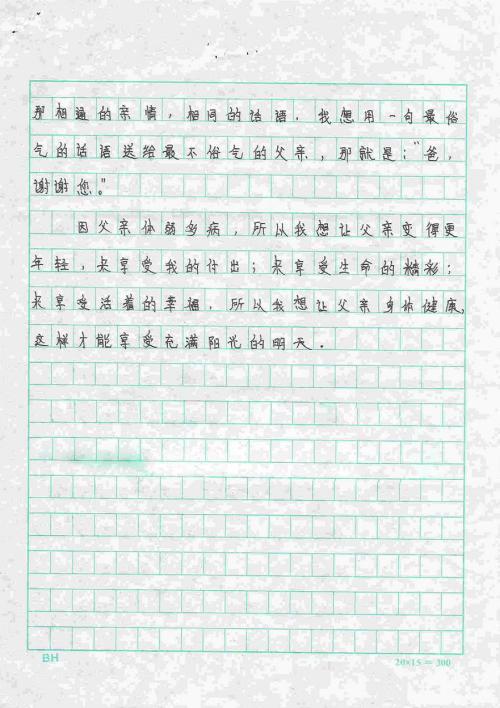 那相逼的亲情，相同的话语．我想用一句最俗
气的话语送给最不俗气的父亲，那就是：“爸，
谢谢您。”
因父亲体弱多病，所以我想让父亲变得更
年轻，来享受我的付出；来享受生命的精彩；
来享受活着的幸福．所以我想让父亲身体健康，
这样才能享受充满阳光的明天．
BH
20×15＝300